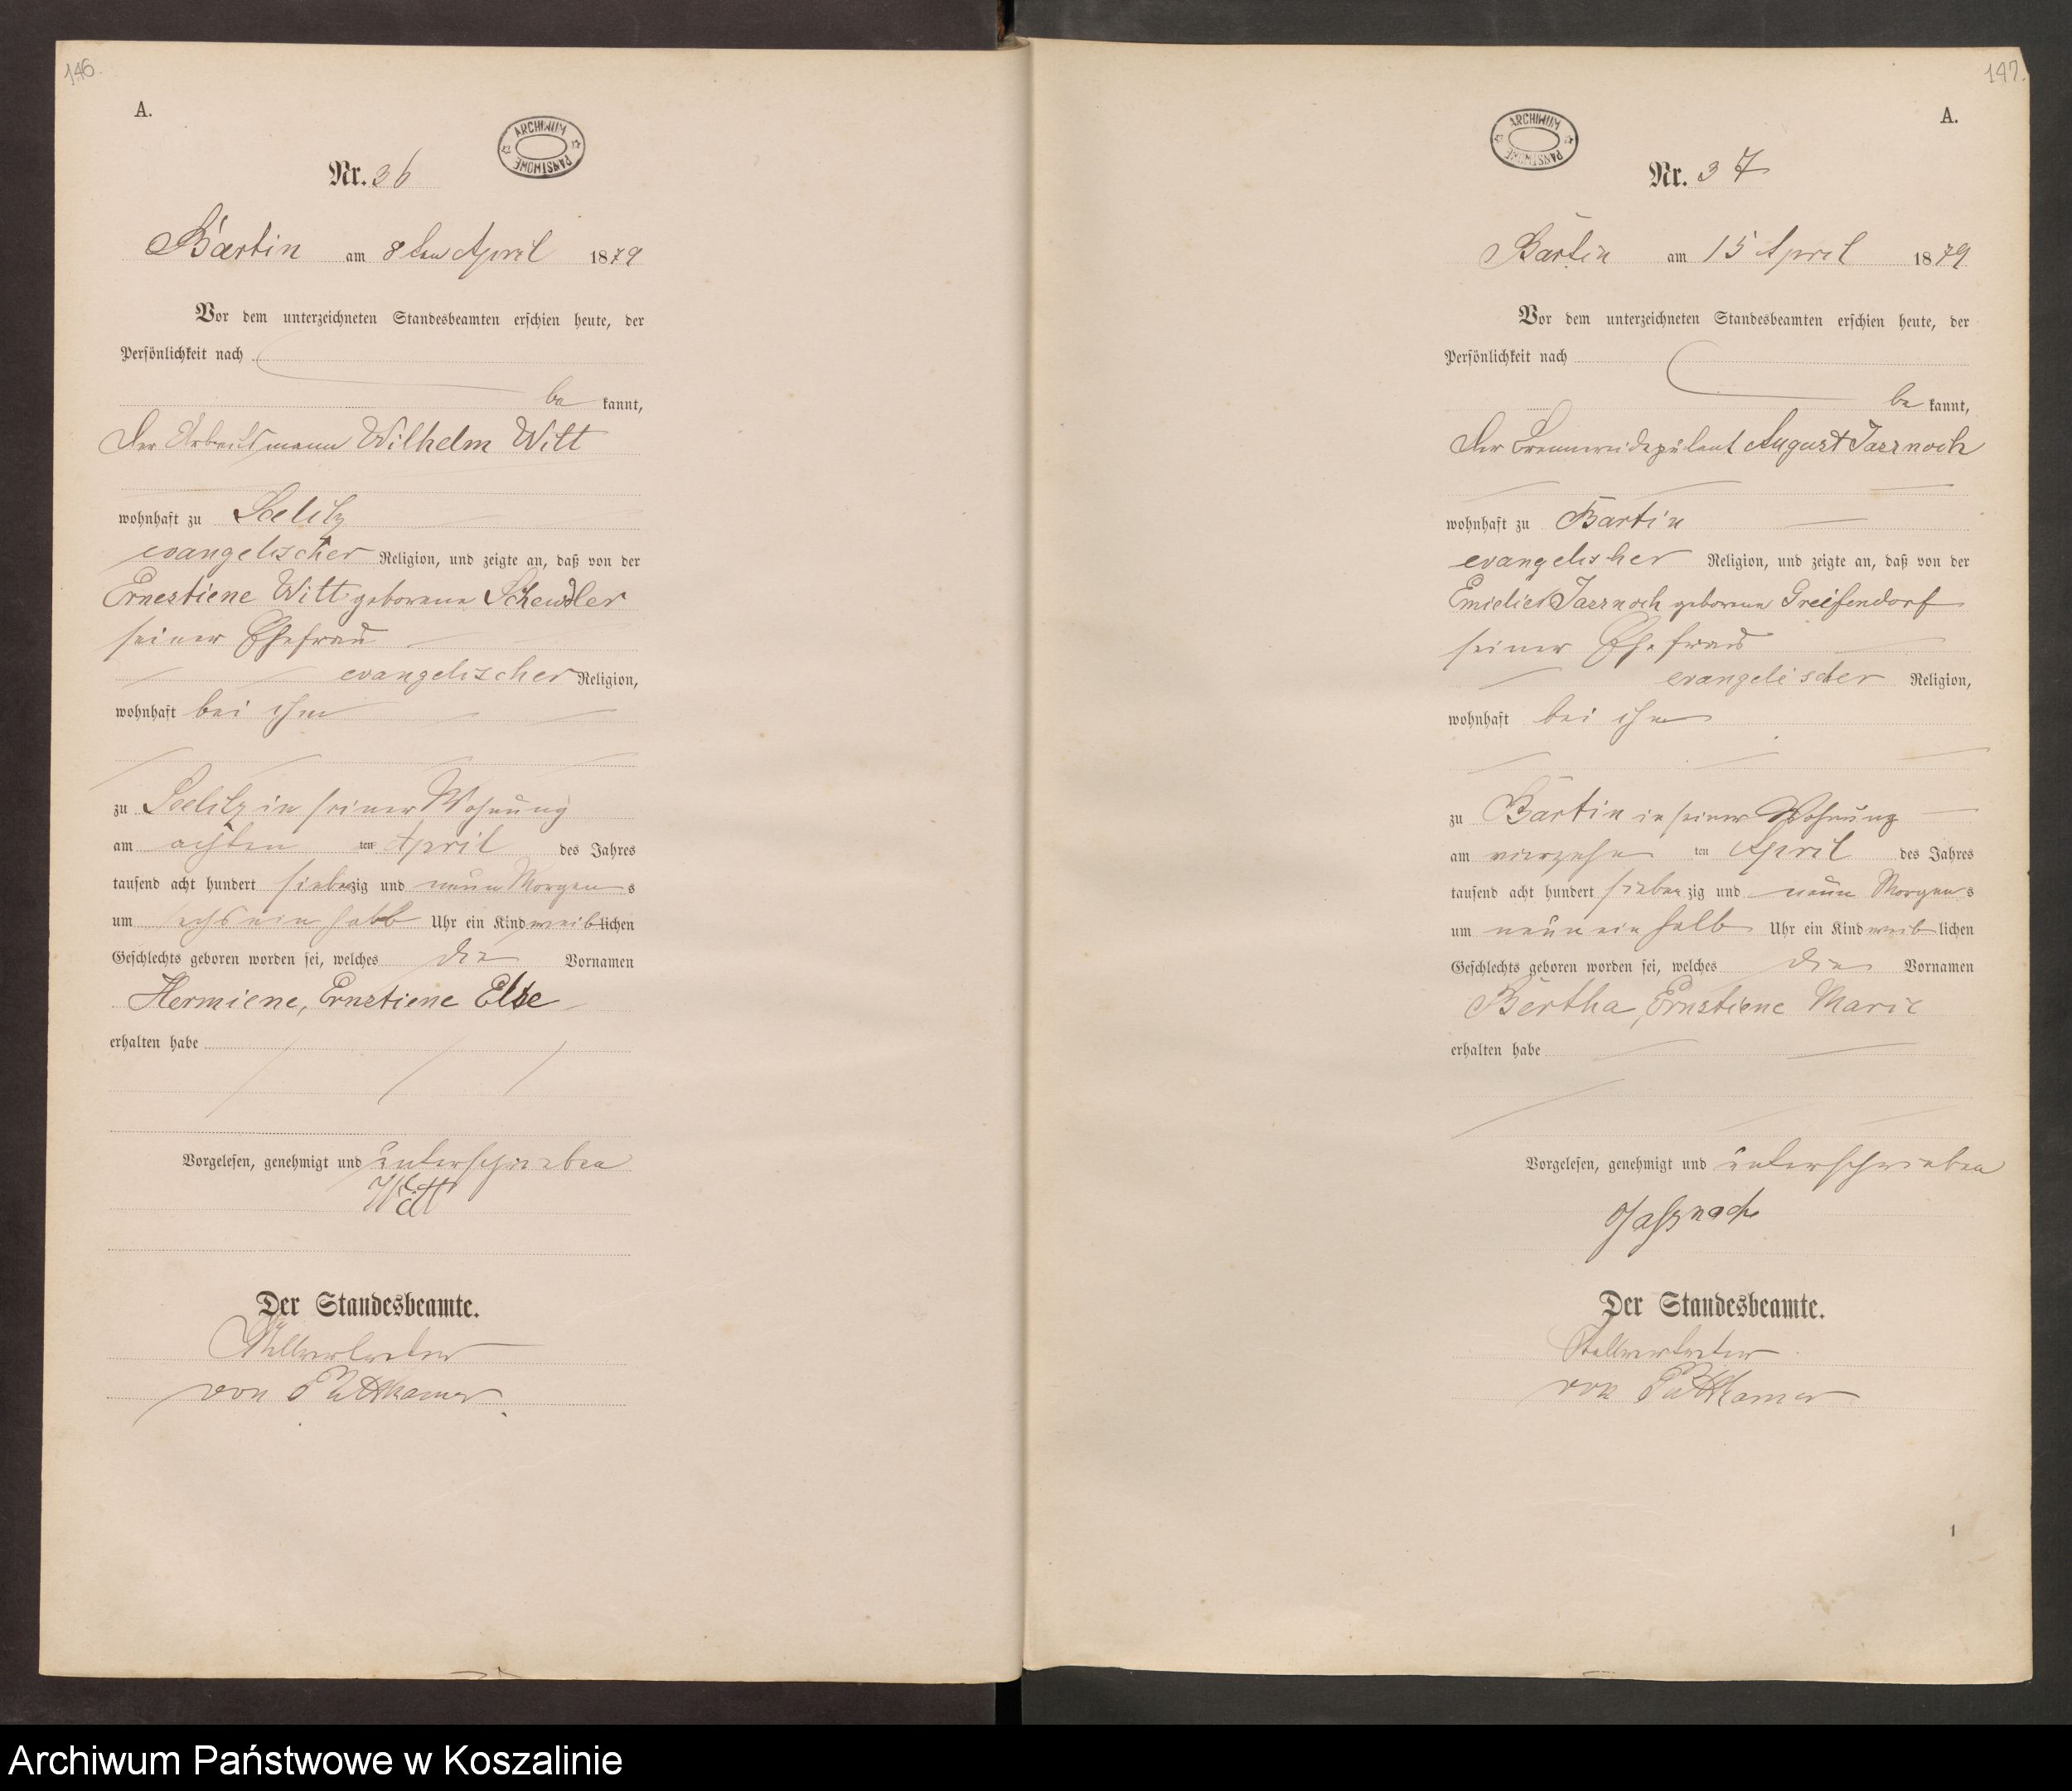 146.
A.
ARCHIWUM PAŃSTWOWE
Nr. 36
Bartin am 8ten April 1879
Vor dem unterzeichneten Standesbeamten erschien heute, der
Persönlichkeit nach
be kannt,
Der Arbeitsmann Wilhelm Witt
wohnhaft zu Seelitz
evangelischer Religion, und zeigte an, daß von der
Ernestiene Witt geborene Schewdler
seiner Ehefrau
evangelischer Religion,
wohnhaft bei ihm
zu Seelitz in seiner Wohnung
am achten ten April des Jahres
tausend acht hundert siebenzig und neun Morgens
um sechs ein halb Uhr ein Kind weiblichen
Geschlechts geboren worden sei, welches die Vornamen
Hermiene, Ernstiene Else
erhalten habe
Vorgelesen, genehmigt und unterschrieben
Witt
Der Standesbeamte.
Stellvertreter
von Puttkamer
147.
A.
ARCHIWUM PAŃSTWOWE
Nr. 37
Bartin am 15 April 1879
Vor dem unterzeichneten Standesbeamten erschien heute, der
Persönlichkeit nach
be kannt,
Der August Jasznoch
wohnhaft zu Bartin
evangelischer Religion, und zeigte an, daß von der
Emielie Jasznoch geborene Greifendorf
seiner Ehefrau
evangelischer Religion,
wohnhaft bei ihm
zu Bartin in seiner Wohnung
am vierzehn ten April des Jahres
tausend acht hundert siebenzig und neun Morgens
um neun ein halb Uhr ein Kind weiblichen
Geschlechts geboren worden sei, welches die Vornamen
Bertha, Ernstiene Marie
erhalten habe
Vorgelesen, genehmigt und unterschrieben
Jasznoch
Der Standesbeamte.
Stellvertreter
von Puttkamer
1
Archiwum Państwowe w Koszalinie